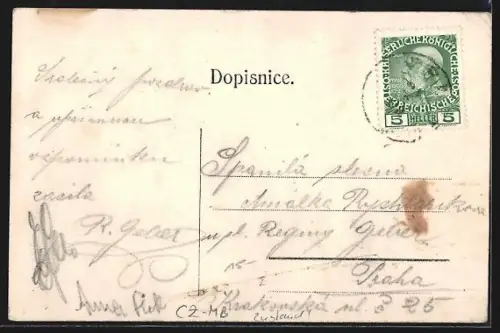 Dopisnice.
KAISERLICHE KÖNIGLICHE
ÖSTERREICHISCHE
5 HELLER 5
Srdečný pozdrav
a upřímnou
vzpomínku
zasílá
R. Geber
Spanilá slečna
Amálka
Reginy Geber
Praha
Krakovská ul. č 25
15-
CZ-MB